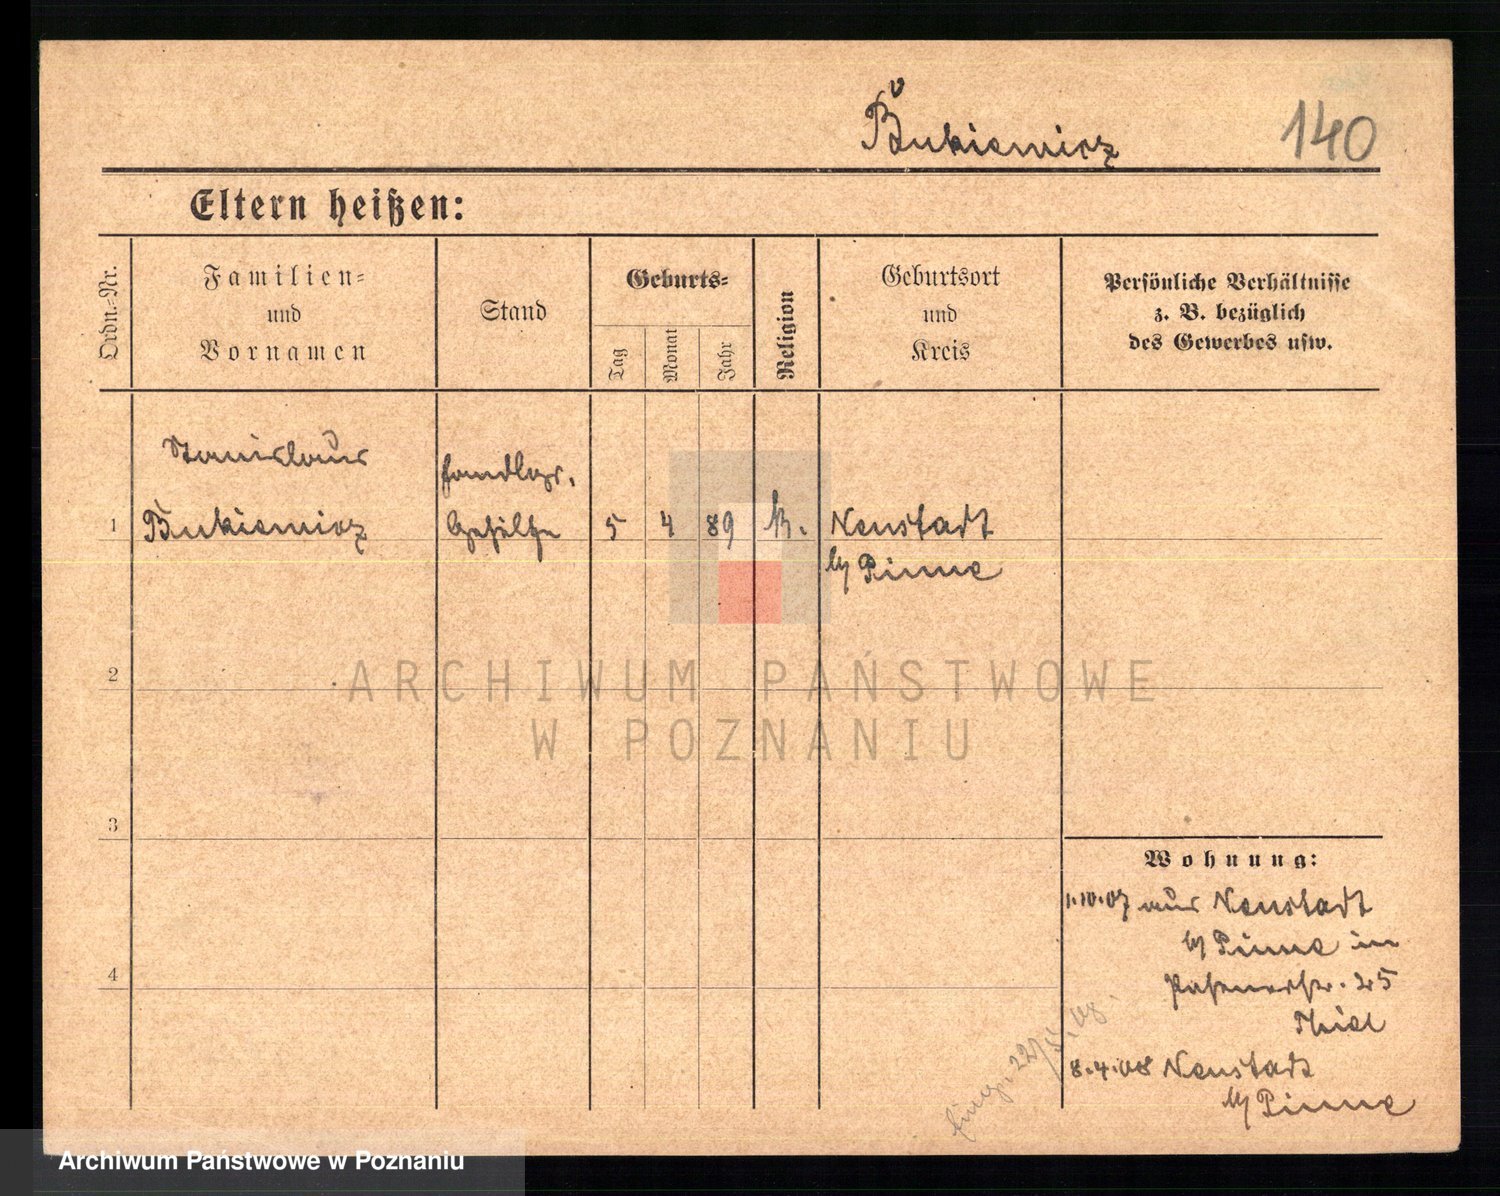 Bukiewicz
140
Eltern heißen:
Ordn.-Nr.
Familien-
und
Vornamen
Stand
Geburts-
Tag
Monat
Jahr
Religion
Geburtsort
und
Kreis
Persönliche Verhältnisse
z. B. bezüglich
des Gewerbes usw.
Stanislaus
Handlgs.
1 Bukiewicz Gehilfe 5 4 89 k. Neustadt
b/ Pinne
2
ARCHIWUM PAŃSTWOWE
W POZNANIU
3
Wohnung:
1.10.07 aus Neustadt
b/ Pinne in
4
Posenerstr. 25
Thiel
8.4.08 Neustadt
b/ Pinne
22/5.08.
Archiwum Państwowe w Poznaniu